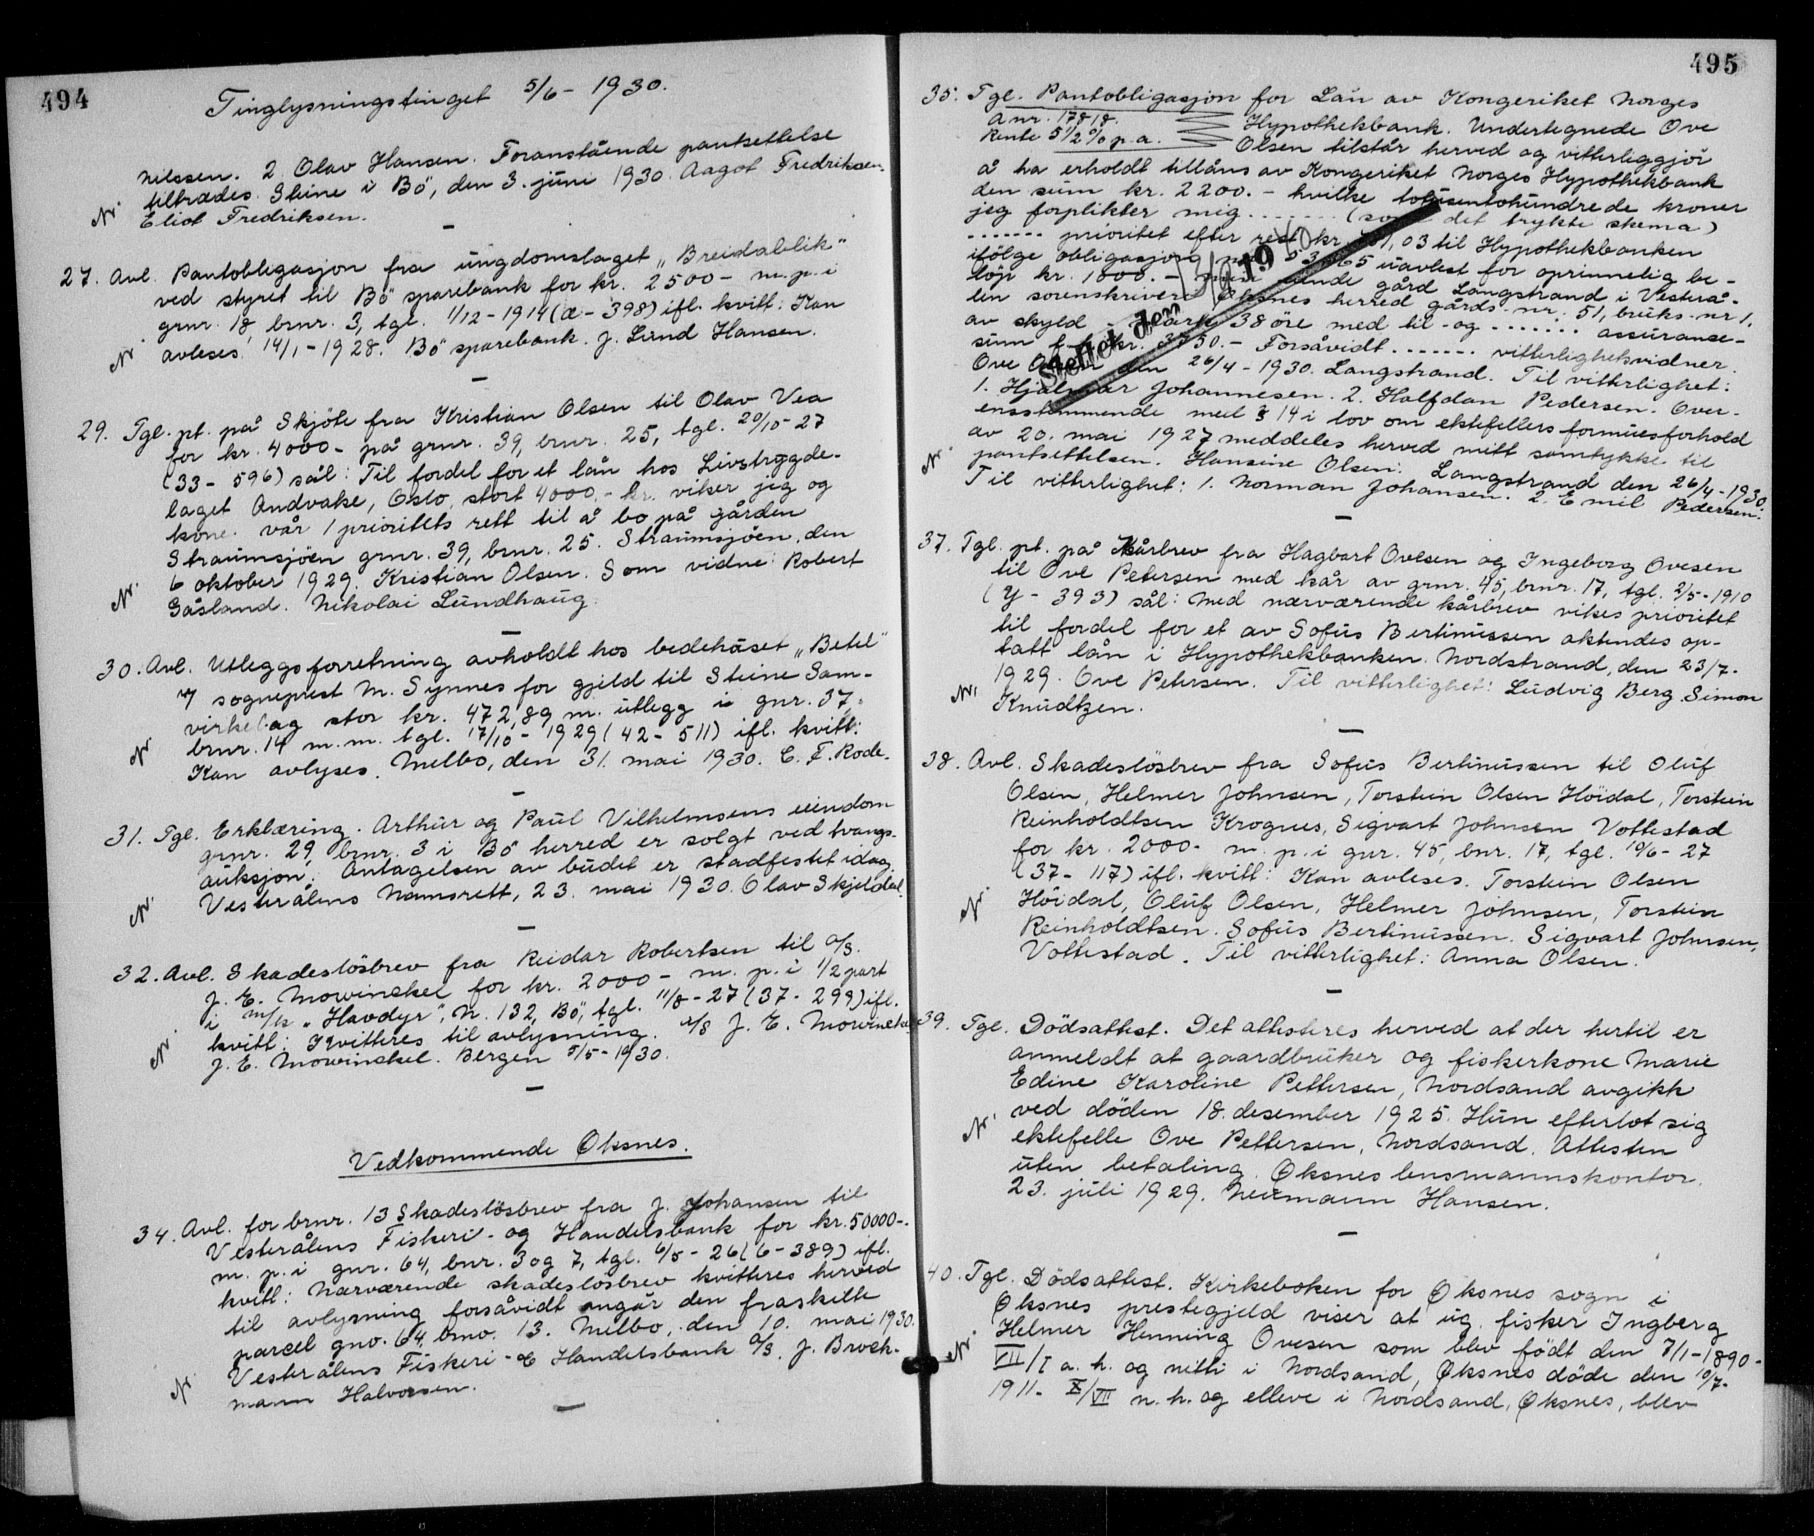 494
Tinglysningstinget 5/6 - 1930.
Nilssen. 2 Olav Hansen. Foranstående pantsettelse
tiltrædes. Steine i Bö, den 3. juni 1930. Aagot Fredriksen
Eliot Fredriksen.
27. Avl. Pantobligasjon fra ungdomslaget „Breidablik"
ved styret til Bö sparebank for kr. 2500- m. p. i
grnr. 18 brnr. 3, tgl. 1/12 - 1914 (a - 398) ifl. kvitt: Kan
avleses 14/1 - 1928. Bö sparebank. J. Lund Hansen.
29. Tgl. pt. på Skjöte fra Kristian Olsen til Olav Vea
for kr. 4000- på grnr. 39, brnr. 25, tgl. 20/10 - 27
(33 - 596) sål: Til fordel for et lån hos Livstrygde-
laget Andvake, Oslo, stort 4000.- kr. viker jeg og
kone vår 1 prioritets rett til å bo på gården
Straumsjöen grnr. 39, brnr. 25. Straumsjöen, den
6 oktober 1929. Kristian Olsen. Som vidne: Robert
Gåsland. Nikolai Lundhaug.
30. Avl. Utleggsforretning avholdt hos bedehuset „Betel"
v/ sogneprest M. Synnes for gjeld til Steine Sam-
virkelag stor kr. 472,89 m. utlegg i gnr. 37,
brnr. 14 m. m. tgl. 17/10 - 1929 (42 - 511) ifl. kvitt:
Kan avlyses. Melbo, den 31. mai 1930. C. F. Rode.
31. Tgl. Erklæring. Arthur og Paul Vilhelmsens eiendom
grnr. 29, brnr. 3 i Bö herred er solgt ved tvangs-
auksjon. Antagelsen av budet er stadfestet idag
Vesterålens Namsrett, 23. mai 1930. Olav Skjeldal.
32. Avl. Skadeslösbrev fra Reidar Robertsen til A/S.
J. E. Mowinckel for kr. 2000- m. p. i 1/2 part
i m/k „Havdyr", N. 132, Bö, tgl. 11/8 - 27 (37 - 299) ifl.
kvitt: Kvitteres til avlysning. A/S J. E. Mowinckel
J. E. Mowinckel. Bergen 5/5 - 1930.
Vedkommende Öksnes.
34. Avl. for brnr. 13 Skadeslösbrev fra J. Johansen til
Vesterålens Fiskeri- og Handelsbank for kr. 50000-.
m. p. i gnr. 64, bnr. 3 og 7, tgl. 6/5 - 26 (6 - 389) ifl.
kvitt: Nærværende skadeslösbrev kvitteres herved
til avlysning forsåvidt angår den fraskilte
parcel gno. 64 bno. 13. Melbo, den 10. mai 1930.
Vesterålens Fiskeri- & Handelsbank A/S. J. Broch-
mann Halvorsen.
495
35. Tgl. Pantobligasjon for Lån av Kongeriket Norges
Anr. 17818. Hypothekbank. Undertegnede Ove
Rente 5 1/2 % p.a. Olsen tilstår herved og vitterliggjör
å ha erholdt tillåns av Kongeriket Norges Hypothekbank
den sum kr. 2200.- hvilke totusentohundrede kroner
jeg forplikter mig ...... (som det trykte skema)
...... prioritet efter rest kr. ,03 til Hypothekbanken
ifölge obligasjon uavlest for oprinnelig be-
löp kr. 1000.- gård Langstrand i Vesterå-
len sorenskriveri Öksnes herred gårds. nr. 51, bruks. nr 1,
av skyld mark 38 öre med til- og ....... assuranse-
sum kr. 50.- Forsåvidt ....... vitterlighetsvidner.
Ove Olsen den 26/4 - 1930. Langstrand. Til vitterlighet:
1. Hjalmar Johannesen. 2. Halfdan Pedersen. Over-
ensstemmende med § 14 i lov om ektefellers formuesforhold
av 20. mai 1927 meddeles herved mitt samtykke til
pantsettelsen. Hansine Olsen. Langstrand den 26/4 - 1930.
Til vitterlighet: 1. Norman Johansen. 2. Emil Pedersen.
Slettet den 19
37. Tgl. pt. på Kårbrev fra Hagbart Ovesen og Ingeborg Ovesen
til Ove Petersen med kår av grnr. 45, brnr. 17, tgl. 2/5 - 1910
(Y - 393) sål: Med nærværende kårbrev vikes prioritet
til fordel for et av Sofus Bertinussen aktendes op-
tatt lån i Hypothekbanken. Nordstrand, den 23/7 -
1929. Ove Petersen. Til vitterlighet: Ludvig Berg. Simon
Knudtzen.
38. Avl. Skadeslösbrev fra Sofus Bertinussen til Oluf
Olsen, Helmer Johnsen, Torstein Olsen Höidal, Torstein
Reinholdtsen Krognes, Sigvart Johnsen Vottestad
for kr. 2000- m. p. i gnr. 45, bnr. 17, tgl. 10/6 - 27
(37 - 117) ifl. kvitt: Kan avleses. Torstein Olsen
Höidal, Oluf Olsen, Helmer Johnsen, Torstein
Reinholdtsen. Sofus Bertinussen. Sigvart Johnsen,
Vottestad. Til vitterlighet: Anna Olsen.
39. Tgl. Dödsattest. Det attesteres herved at der hertil er
anmeldt at gaardbruker og fiskerkone Marie
Edine Karoline Pettersen, Nordsand avgikk
ved döden 18. desember 1925. Hun efterlot sig
ektefelle Ove Pettersen, Nordsand. Attesten
uten betaling. Öksnes lensmannskontor.
23. juli 1929. Neumann Hansen.
40. Tgl. Dödsattest. Kirkeboken for Öksnes sogn i
Öksnes prestegjeld viser at ug. fisker Ingberg
Helmer Henning Ovesen som blev födt den 7/1 - 1890 -
VII/I a. h. og nitti i Nordsand, Öksnes döde den 10/7 -
1911 - X/VII n. h. og elleve i Nordsand, Öksnes, blev